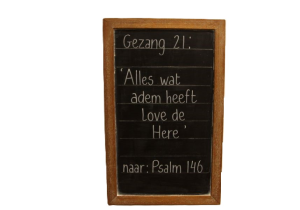 Gezang 21:
'Alles wat
adem heeft
Love de
Here'
naar: Psalm 146